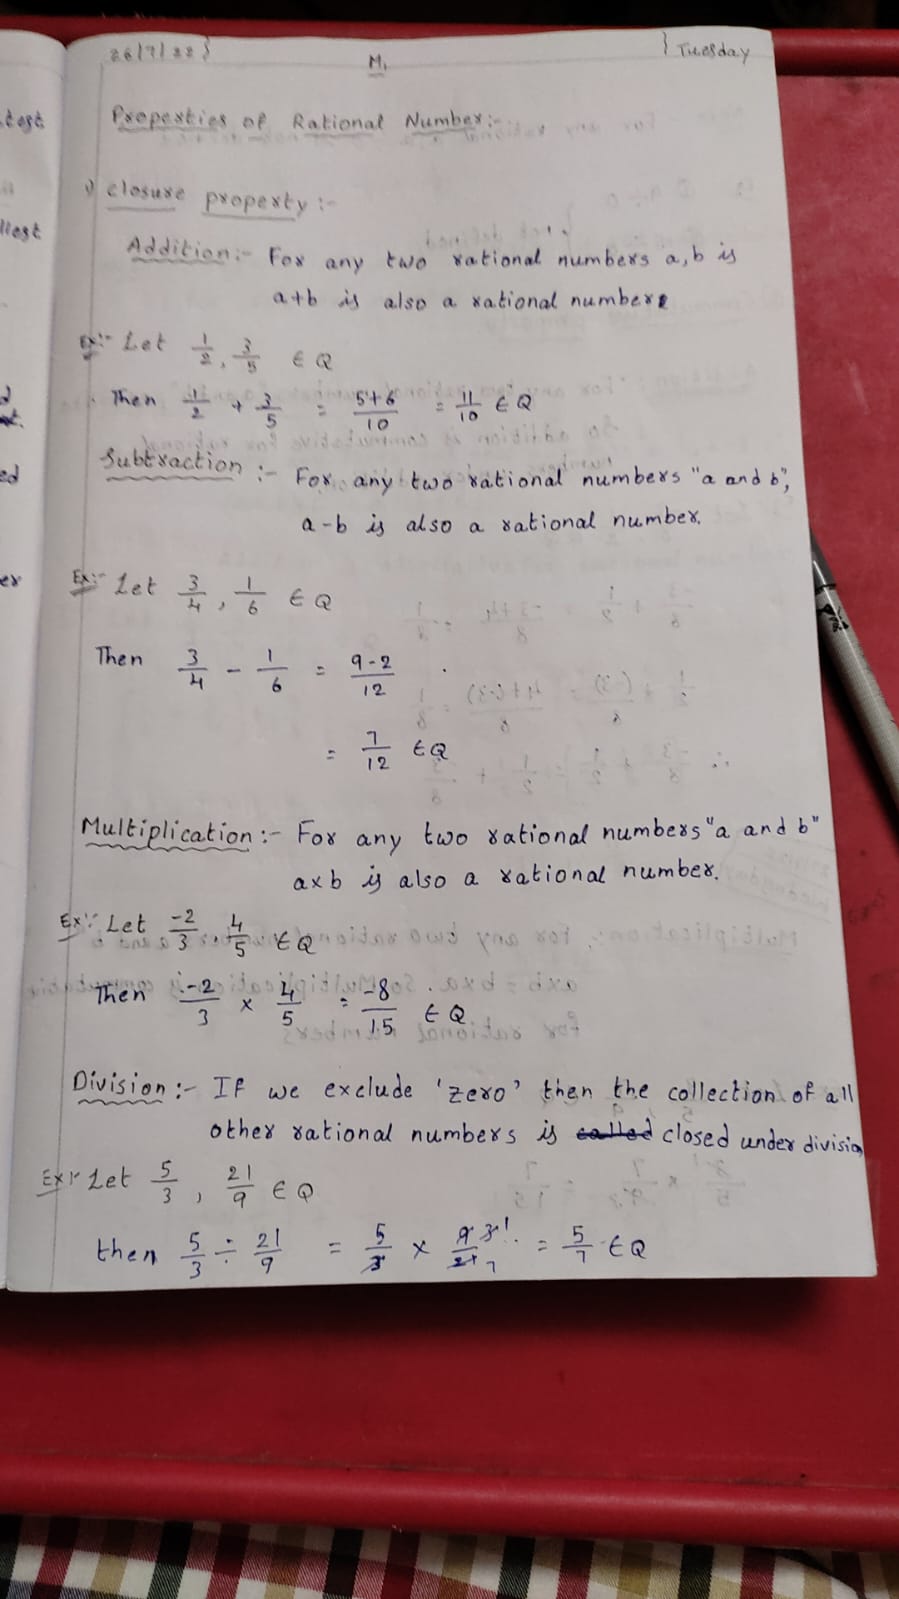 26/7/22 } M, } Tuesday
Properties of Rational Number:-
1) closure property :-
Addition:- For any two rational numbers a,b is
a+b is also a rational number.
Ex:- Let 1/2, 3/5 ∈ Q
Then 1/2 + 3/5 = 5+6/10 = 11/10 ∈ Q
Subtraction :- For any two rational numbers "a and b",
a-b is also a rational number.
Ex:- Let 3/4, 1/6 ∈ Q
Then 3/4 - 1/6 = 9-2/12
= 7/12 ∈ Q
Multiplication:- For any two rational numbers "a and b"
a×b is also a rational number.
Ex:- Let -2/3, 4/5 ∈ Q
Then -2/3 × 4/5 = -8/15 ∈ Q
Division:- If we exclude 'zero' then the collection of all
other rational numbers is called closed under division
Ex:- Let 5/3, 21/9 ∈ Q
then 5/3 ÷ 21/9 = 5/3 × 9 3 1/21 7 = 5/7 ∈ Q